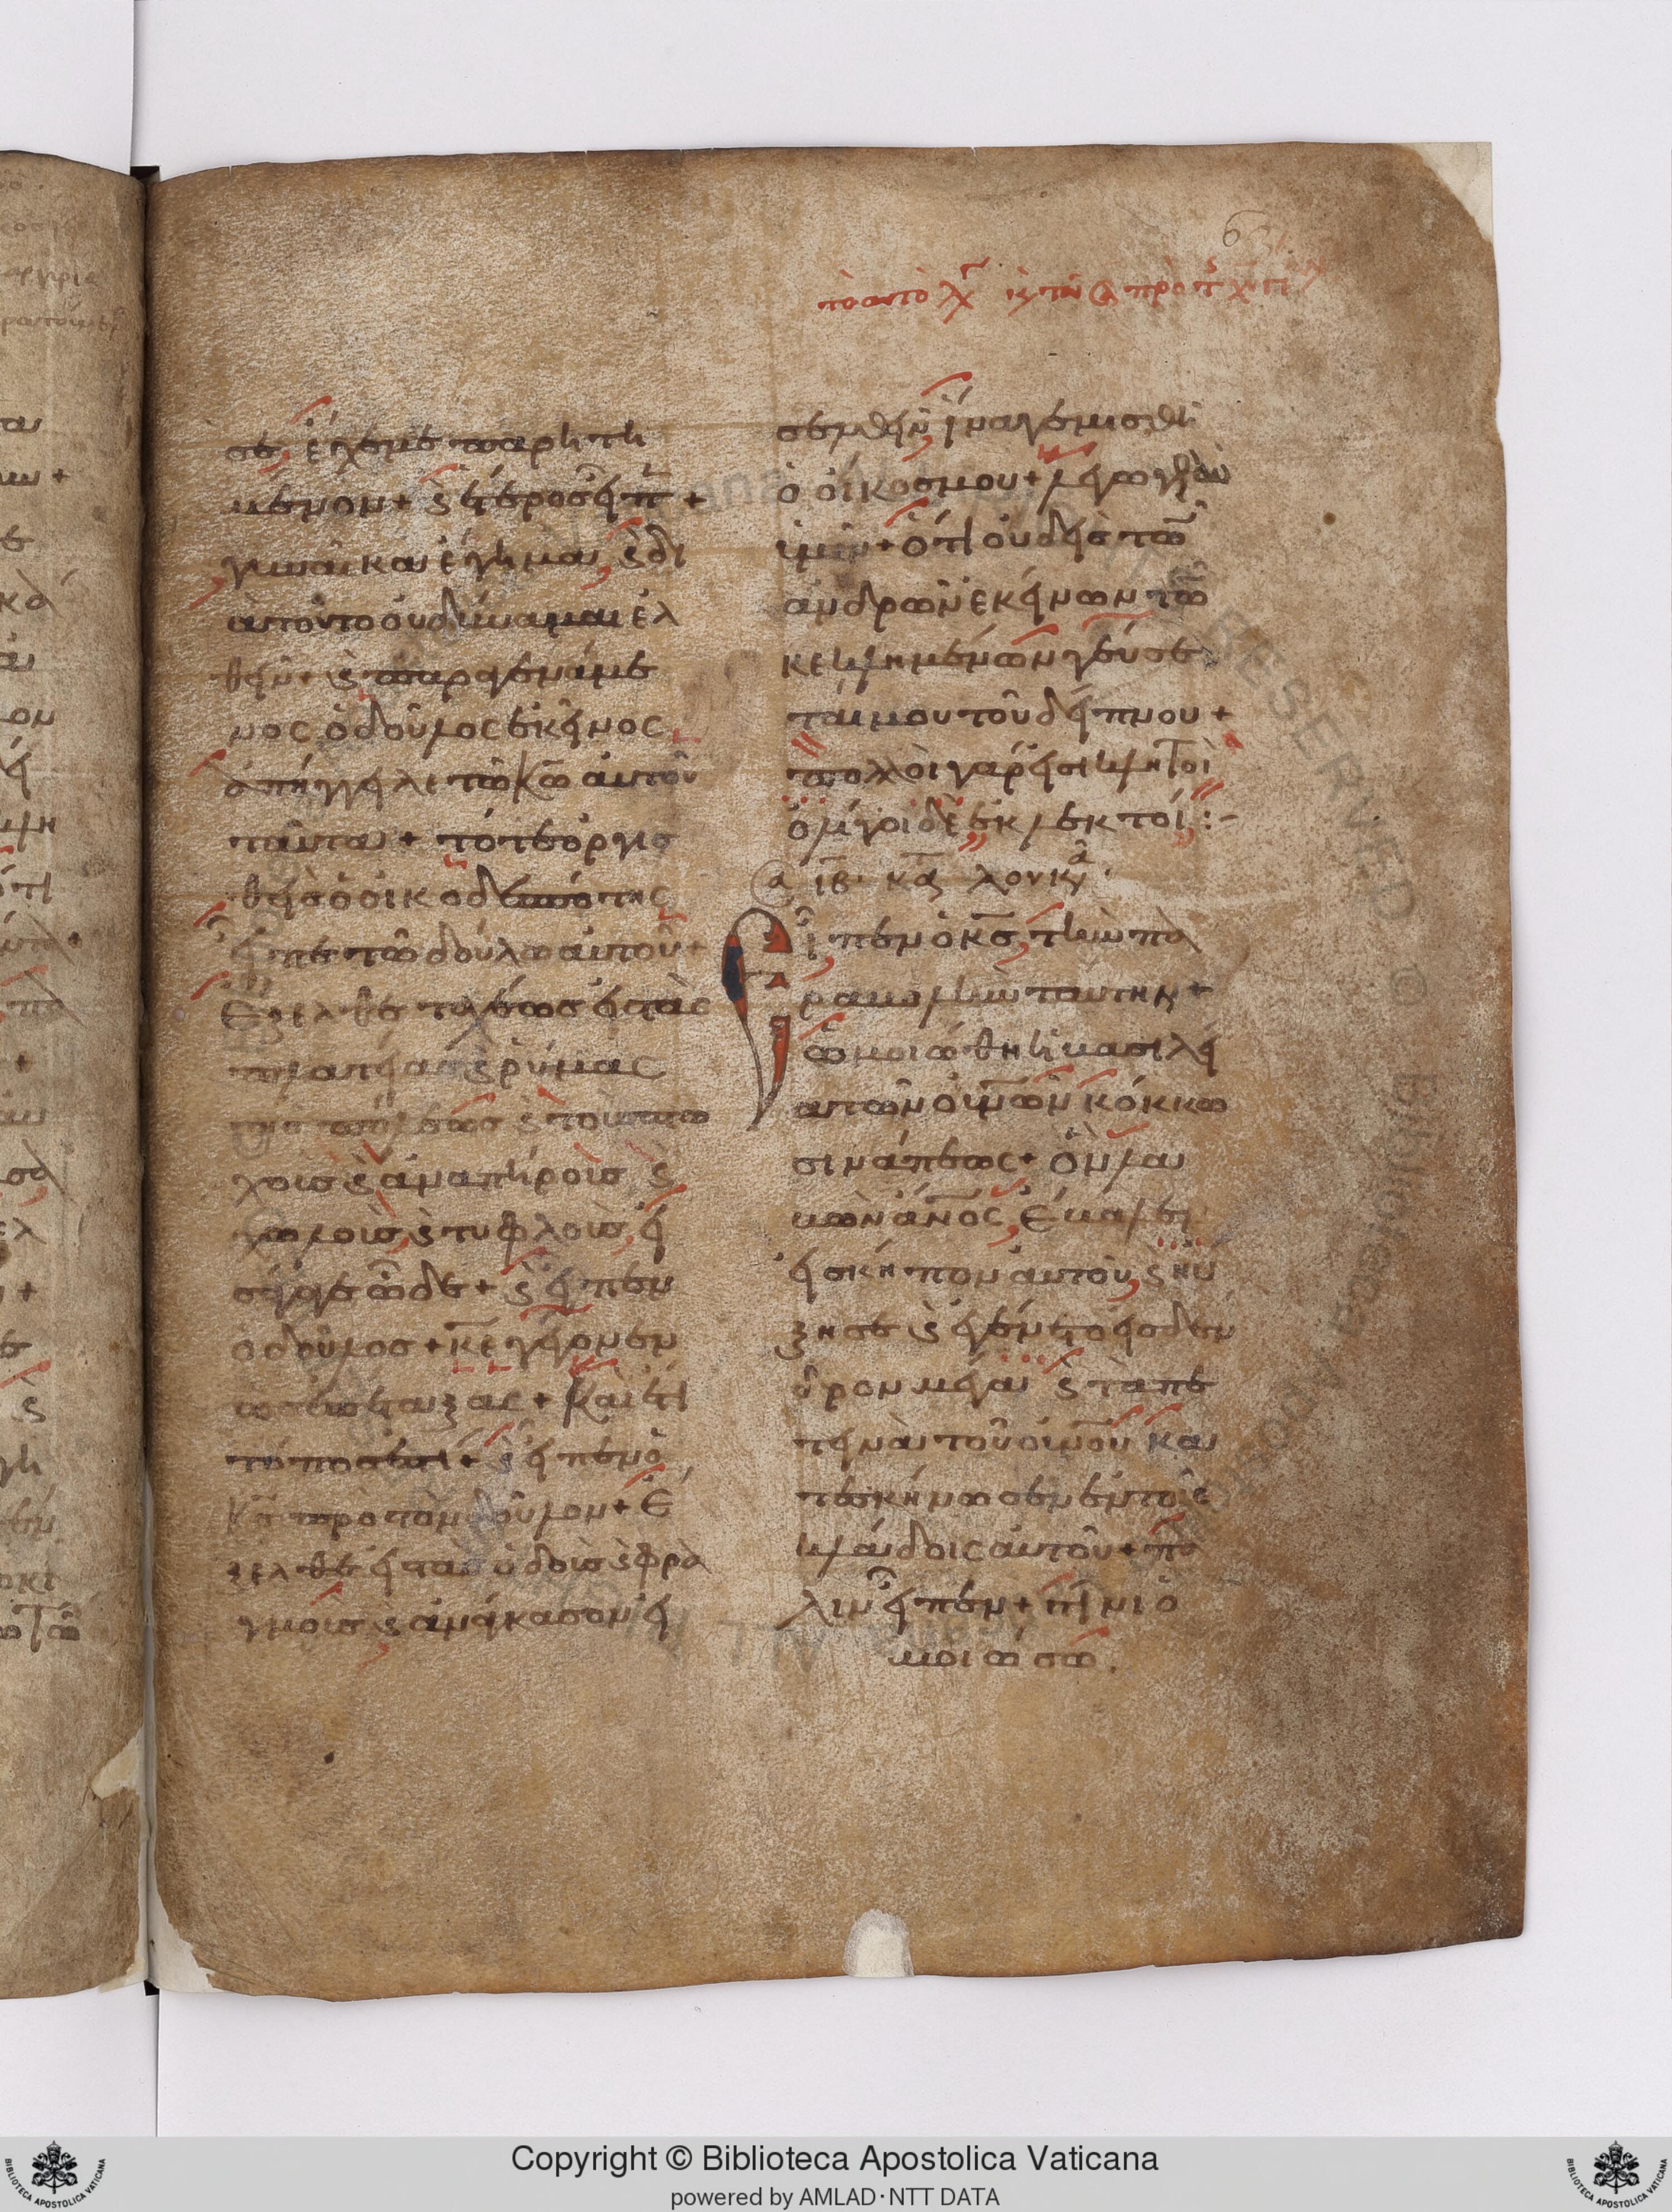 63
τὸ αυτὸ
σε, ἔχεμε παρητη
μένον + ϛ ἕτεροσ εἶπ +
γυναῖκαι έγημαι, ϛ δι
ὰτοῦτο οὐδύναμαι ἐλ
θεῖν + ϛ παραγενάμε
νος ὁ δοῦλος ἐκεῖνος
ἀπήγγειλε τῶ κω αυτοῦ
ταῦτα + τότε ὀργισ
θεὶσ ὁ οἰκοδεσπότης
εἶπε τῶ δούλω αυτοῦ +
Ἔξελθε ταχέωσ εἰ τὰς
πλατείασ ϛ ρύμας
τῆσ πόλεωσ ϛ τοὺσ πτω
χοισ ϛ ἀναπήροισ, ϛ
χωλοισ, ϛ τυφλοισ, εἰ
σάγαγε ὧδε + ϛ εἶπεν
ὁ δοῦλοσ + κε γέγονεν
ωσ ἐπέταξας + Καὶ ἔτι
τόποσ ἐστὶ + ϛ εἶπεν ὁ
κσ πρὸ τὸν δοῦλον + Ἔ
ξελθε εἰ τὰσ ὁδοὺσ ϛ φρα
γμοισ ϛ ἀνάγκασον εἰ
σελθεῖν ἵνα γεμισθῆ
ὁ οἶκοσ μου + λέγω γὰρ
ὑμῖν + ὅτι οὐδεὶσ τῶ
ἀνδρῶν ἐκείνων τῶ
κεκλημένων γεύσε
ταί μου τοῦ δείπνου +
πολλοὶ γάρ εἰσι κλητοὶ
ὀλίγοι δὲ ἐκλεκτοί :-
ιβ. κα λουκα
Εἶπεν ὁ κσ, τὴν πα
ραβολὴν ταύτην +
ὡμοιώθη ἡ βασιλεί
α τῶν οὐνῶν κόκκω
σινάπεως + Ὃν λα
βὼν ἄνος, ἔβαλεν
εἰσ κήπον αυτοῦ, ϛ ηυ
ξησε ϛ ἐγένετο εἰσ δέν
δρον μέγα ϛ τὰ πε
τεινὰ τοῦ οὐνοῦ κα
τεσκήνωσεν ἐν τοῖς
κλάδοις αυτοῦ + πά
λιν εἶπεν + τίνι ὁ
μοιώσω.
Copyright © Biblioteca Apostolica Vaticana
powered by AMLAD·NTT DATA